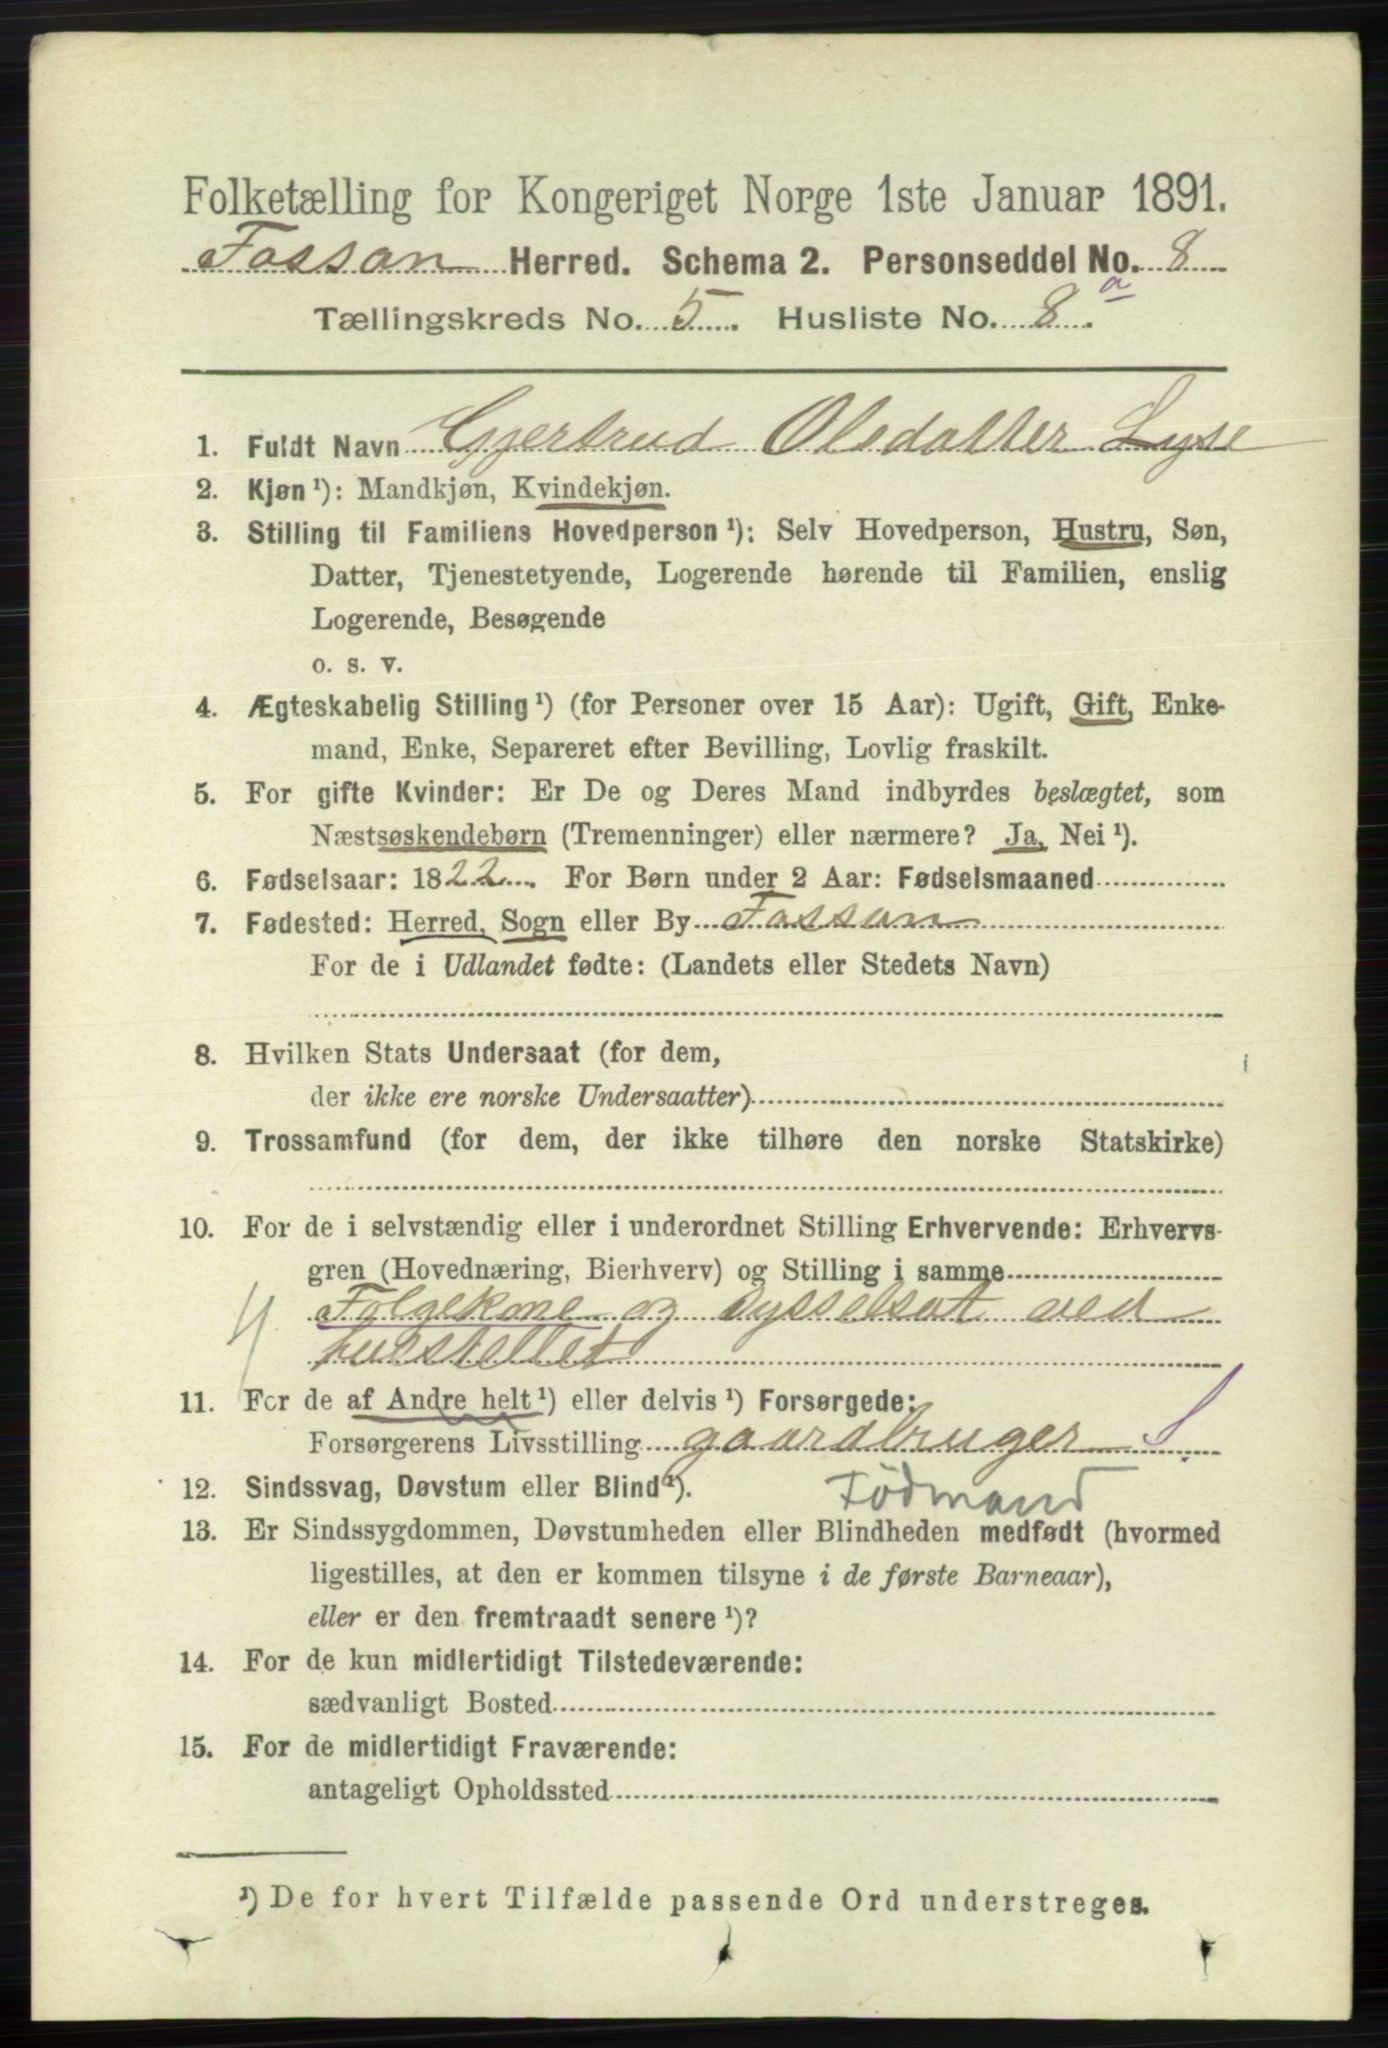 Folketælling for Kongeriget Norge 1ste Januar 1891.
Fossan Herred. Schema 2. Personseddel No. 8
Tællingskreds No. 5. Husliste No. 8 a.
1. Fuldt Navn Gjertrud Olsdatter Lyse
2. Kjøn ¹): Mandkjøn, Kvindekjøn.
3. Stilling til Familiens Hovedperson ¹): Selv Hovedperson, Hustru, Søn,
Datter, Tjenestetyende, Logerende hørende til Familien, enslig
Logerende, Besøgende
o. s. v.
4. Ægteskabelig Stilling ¹) (for Personer over 15 Aar): Ugift, Gift, Enke-
mand, Enke, Separeret efter Bevilling, Lovlig fraskilt.
5. For gifte Kvinder: Er De og Deres Mand indbyrdes beslægtet, som
Næstsøskendebørn (Tremenninger) eller nærmere? Ja, Nei ¹).
6. Fødselsaar: 1822. For Børn under 2 Aar: Fødselsmaaned
7. Fødested: Herred, Sogn eller By Fossan
For de i Udlandet fødte: (Landets eller Stedets Navn)
8. Hvilken Stats Undersaat (for dem,
der ikke ere norske Undersaatter)
9. Trossamfund (for dem, der ikke tilhøre den norske Statskirke)
10. For de i selvstændig eller i underordnet Stilling Erhvervende: Erhvervs-
gren (Hovednæring, Bierhverv) og Stilling i samme
Folgekone og Sysselsat ved
huestellet
11. For de af Andre helt ¹) eller delvis ¹) Forsørgede:
Forsørgerens Livsstilling gaardbruger
12. Sindssvag, Døvstum eller Blind ¹).
Födmand
13. Er Sindssygdommen, Døvstumheden eller Blindheden medfødt (hvormed
ligestilles, at den er kommen tilsyne i de første Barneaar),
eller er den fremtraadt senere ¹)?
14. For de kun midlertidigt Tilstedeværende:
sædvanligt Bosted
15. For de midlertidigt Fraværende:
antageligt Opholdssted
¹) De for hvert Tilfælde passende Ord understreges.